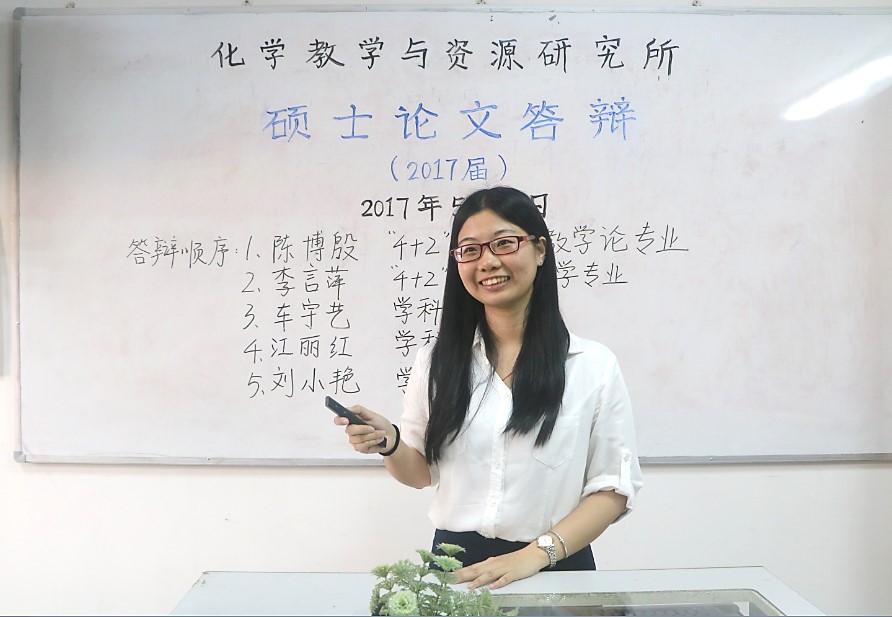 化学教学与资源研究所
硕士论文答辩
(2017届)
2017年5 日
答辩顺序:1、陈博殷 "4+2" 教学论专业
2、李言萍 "4+2" 学专业
3、车宇艺 学科
4、江丽红 学科
5、刘小艳 学